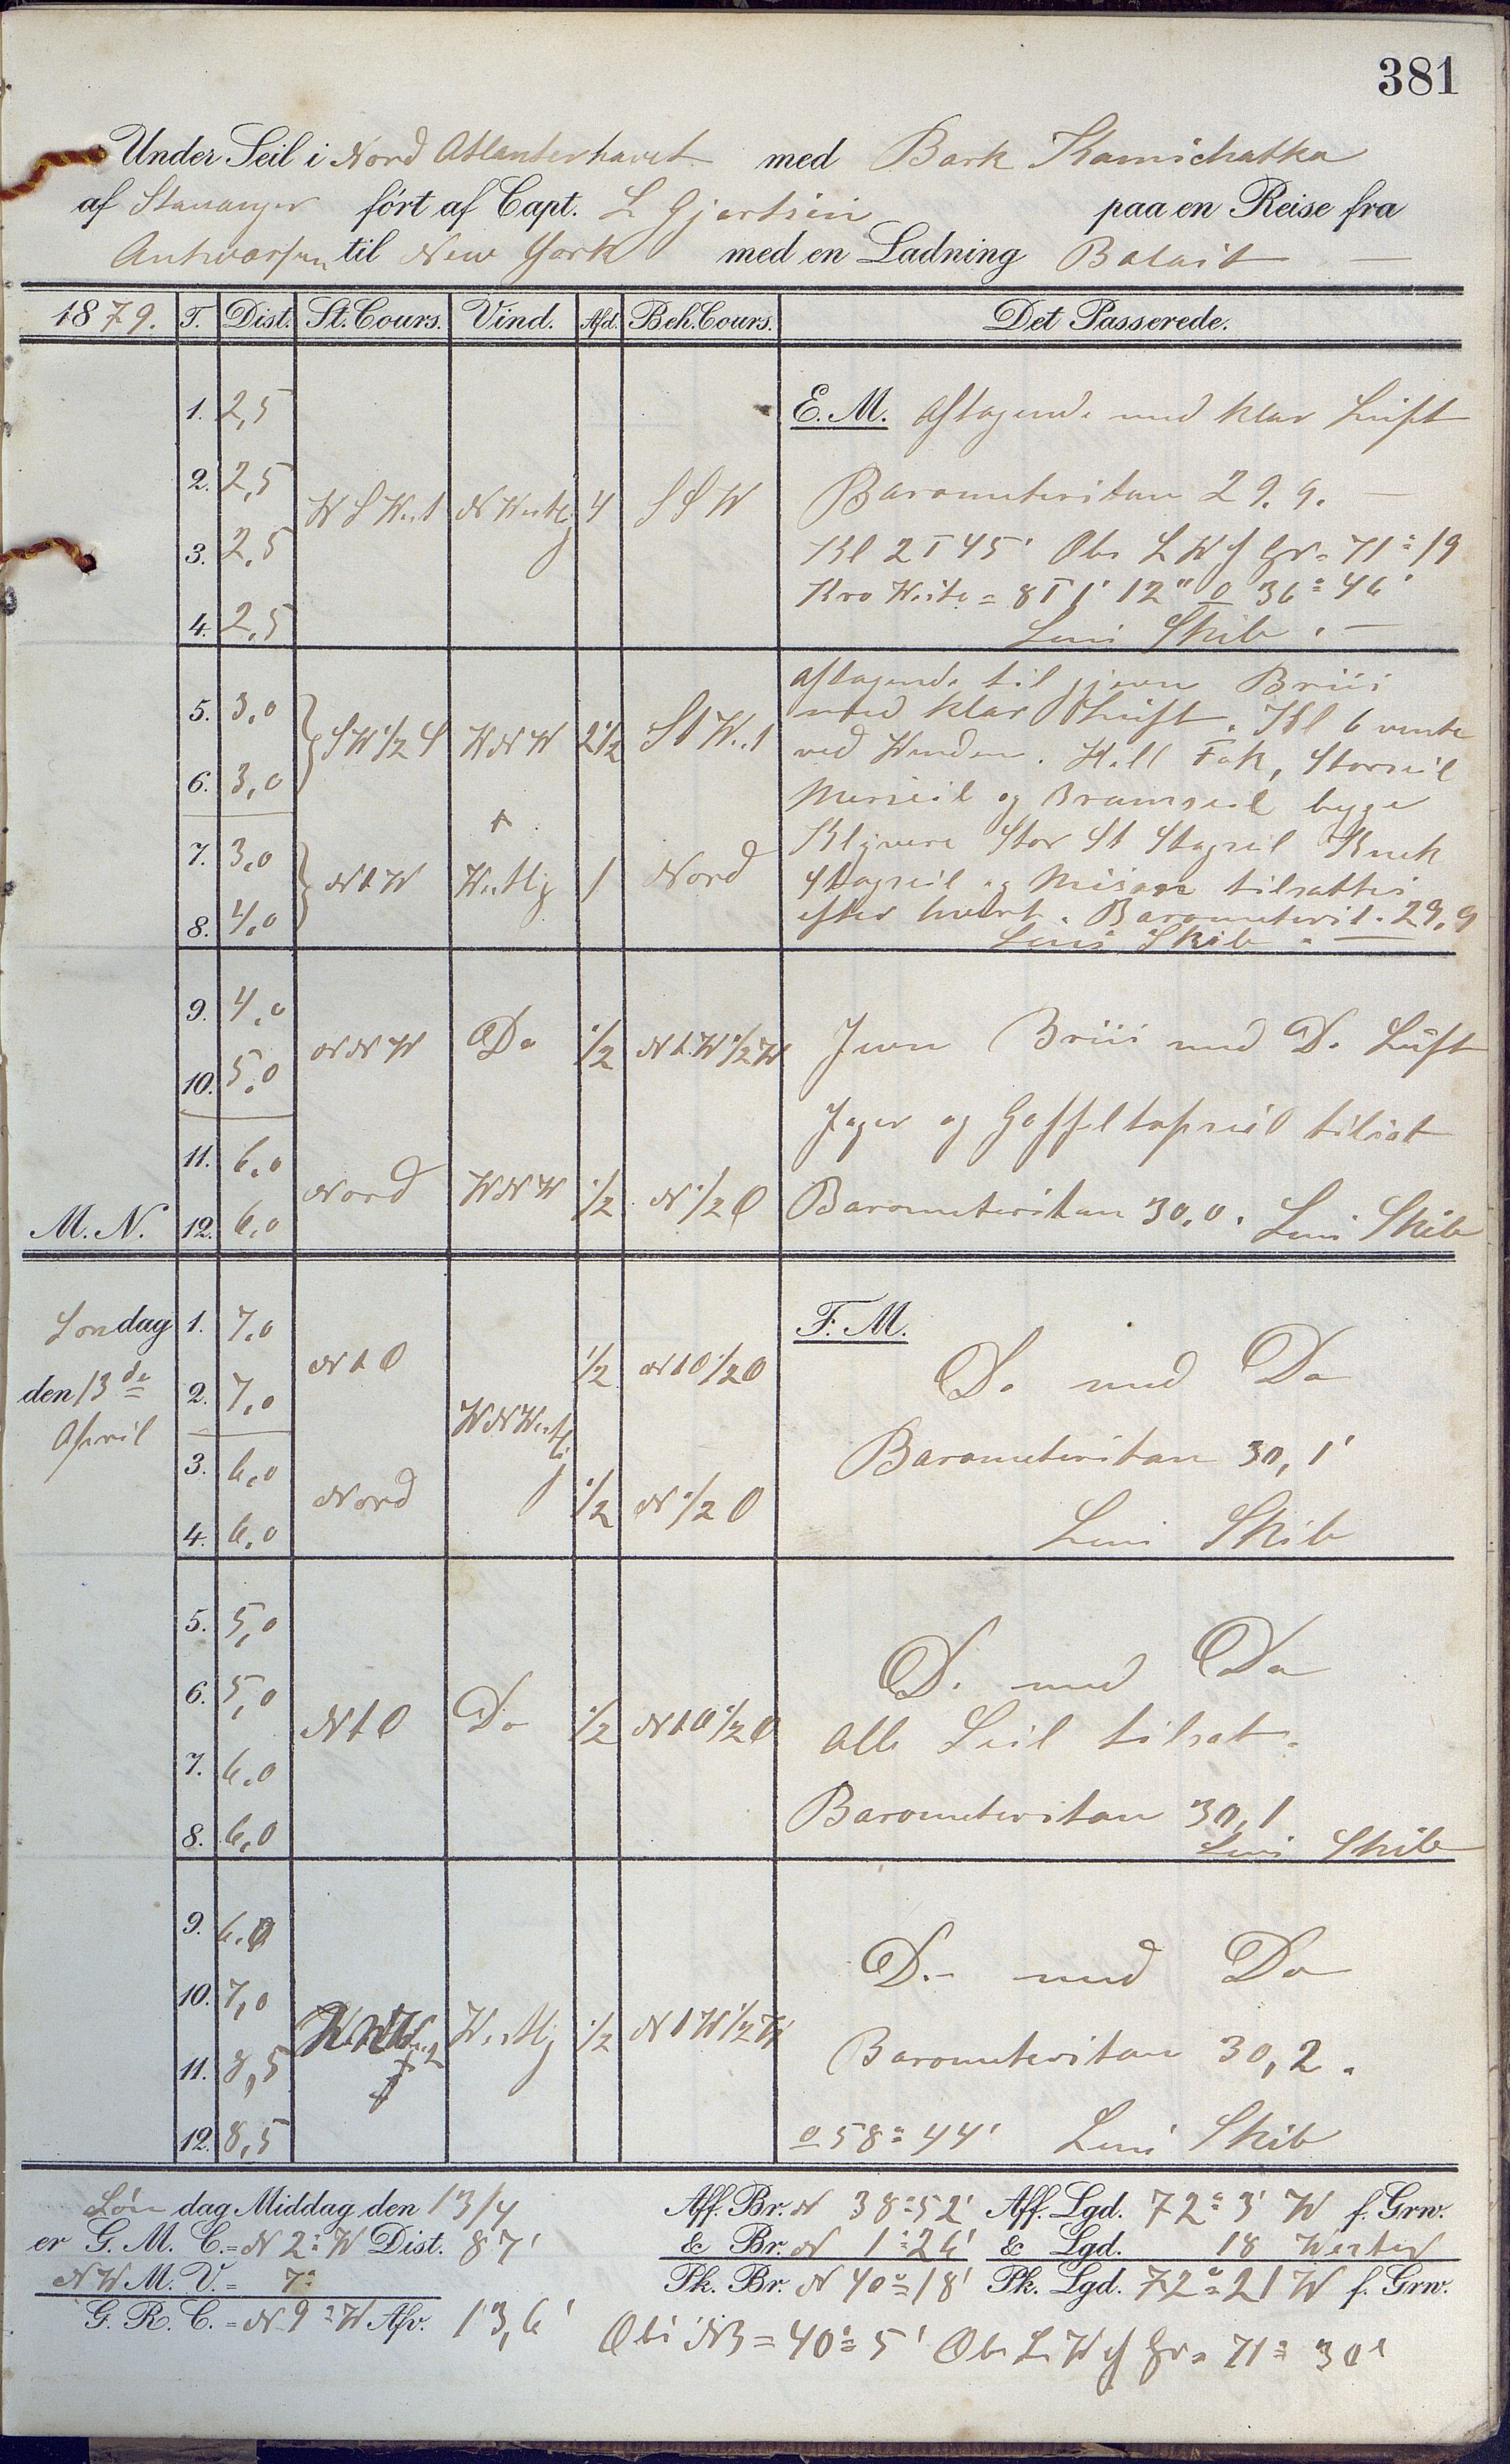 381
Under Seil i Nord Atlanterhavet med Bark Kamschatka
af Stavanger ført af Capt. L Gjertsen paa en Reise fra
Antwerpen til New York med en Ladning Balast —
1879. T. Dist. St. Cours. Vind. Afd. Beh. Cours. Det Passerede.
1. 2,5 E. M. Aftagende med klar Luft
2. 2,5 W S West N Westlig 4 S S W Barometerstan 29.9. —
3. 2,5 Kl 2 T 45' Obs L W f Gr = 71° 19
Kro Weste = 8 T 1' 12" O 36° 46'
4. 2,5 Lens Skib . —
aftagende til jevn Briis
5. 3,0 med klar Luft. Kl 6 vente
SW 1/2 S W N W 2 1/2 S t West ved Wenden. Hell Fok, Storseil
6. 3,0 Merseil og Bramseil begge
7. 3,0 Klyvere Stor St Stagseil Knek
N t W Westlig 1 Nord Stagseil og Misan tilsattes
8. 4,0 efter hvert. Barometerst. 29.9
Lens Skib . —
9. 4,0
N N W Do 1/2 N t W 1/2 W Jevn Briis med Do Luft
10. 5,0
Jager og Gaffeltopseil tilsat
11. 6,0
Nord W N W 1/2 N 1/2 O Barometerstan 30,0. Lens Skib
M. N. 12. 6,0
Søndag 1. 7,0 F. M.
N t O 1/2 N t O 1/2 O Do med Do
den 13de 2. 7,0
April W N Westlig Barometerstan 30,1'
3. 6,0
Nord 1/2 N 1/2 O
4. 6,0 Lens Skib
5. 5,0
6. 5,0 Do med Do
N t O Do 1/2 N t O 1/2 O Alle Seil tilsat.
7. 6,0
Barometerstan 30,1
8. 6,0 Lens Skib
9. 6,0
10. 7,0 Do med Do
Westlig 1/2 N t W 1/2 W
11. 8,5 Barometerstan 30,2.
12. 8,5 O 58° 44' Lens Skib
Søn dag Middag den 13/4 Aff. Br. N 38° 52' Aff. Lgd. 72° 3' W f. Grw.
er G. M. C. = N 2° W Dist. 87' & Br. N 1° 26' & Lgd. 18 Wester
NW M. V. = 7° Pk. Br. N 40° 18' Pk. Lgd. 72° 21 W f. Grw.
G. R. C. = N 9° W Afv. 13,6' Obs NB = 40° 5' Obs L W f Gr = 71° 30'